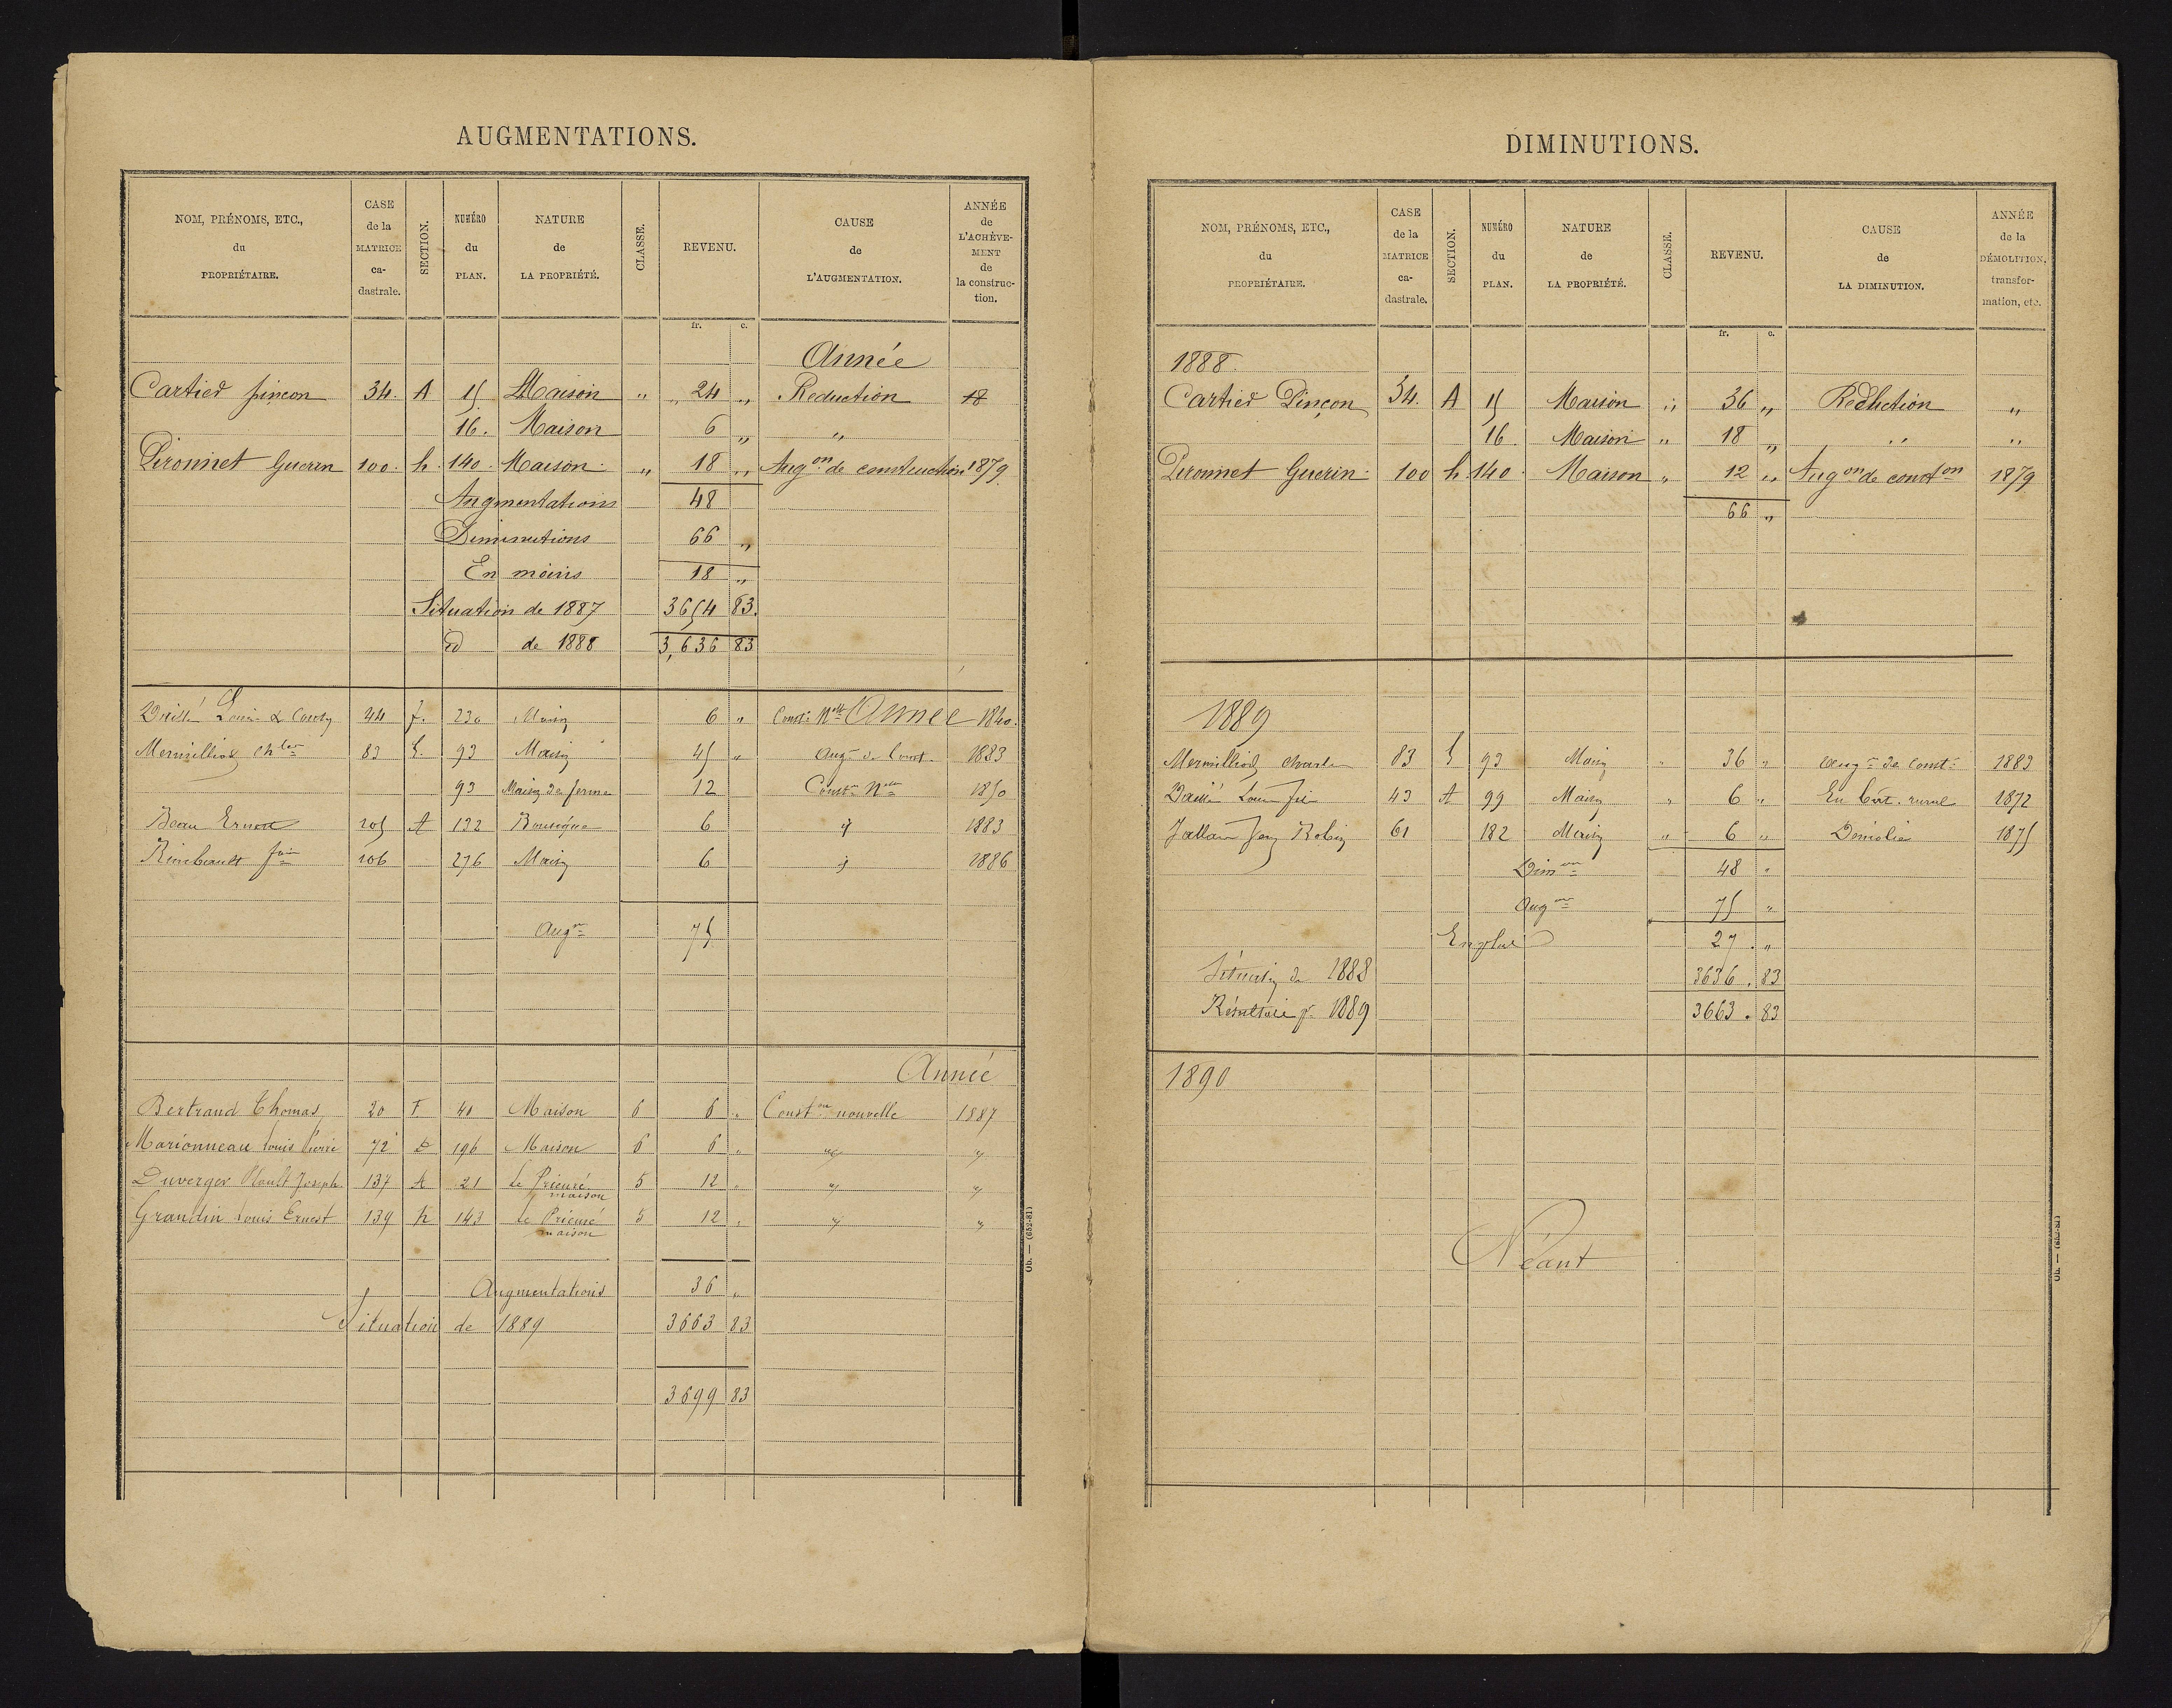 AUGMENTATIONS.
NOM, PRÉNOMS, ETC., du PROPRIÉTAIRE. CASE de la MATRICE ca-dastrale. SECTION. NUMÉRO du PLAN. NATURE de LA PROPRIÉTÉ. CLASSE. REVENU. CAUSE de L'AUGMENTATION. ANNÉE de L'ACHÈVE-MENT de la construc-tion.
fr. c.
Année
Cartier pinçon 34. A 15 Maison " " 24 " Reduction 18
16. Maison 6 " "
Pironnet Guerin 100. h. 140. Maison. " 18 " Aug on de construction 1879.
Augmentations 48
Diminutions 66 "
En moins 18 "
Situation de 1887 3654 83.
id de 1888 3,636 83
Louis & 44 f. 230 Maison 6 " Const. Nlle Année 1840.
Mermilliod Chles 83 G. 93 Maison 45 " Aug on de Const. 1883
93 Maison de ferme 12 Const on Nlle 1850
Beau Ernest 105 A 132 6 " 1883
Rimbeault 106 276 Maison 6 " 1886
Aug on 75
Année
Bertrand Thomas 20 F 40 Maison 6 6 " Const on nouvelle 1887
Marionneau Louis Pierre 72 D 196 Maison 6 6 " " "
Duverger Plault Joseph 137 A 21 le Prieuré maison 5 12 " " "
Grandin Louis Ernest 139 h 143 le Prieuré maison 5 12 " " "
Augmentations 36 "
Situation de 1889 3663 83
3699 83
Ob. — (652-81)
DIMINUTIONS.
NOM, PRÉNOMS, ETC., du PROPRIÉTAIRE. CASE de la MATRICE ca-dastrale. SECTION. NUMÉRO du PLAN. NATURE de LA PROPRIÉTÉ. CLASSE. REVENU. CAUSE de LA DIMINUTION. ANNÉE de la DÉMOLITION, transfor-mation, etc.
fr. c.
1888.
Cartier Pinçon 34. A 15 Maison " 36 " Reduction "
16. Maison " 18 " " "
Pironnet Guerin 100 h. 140. Maison " 12 " Aug on de const on 1879
66 "
1889
Mermilliod Charles 83 G 93 Maison " 36 " Aug on de const. 1883
Louis fils 43 A 99 Maison " 6 " En bât. rural 1872
Jean Robin 61 182 Maison " 6 " Démolie 1875
Dim on 48 "
Aug on 75 "
En plus 27. "
Situation de 1888 3636. 83
Résultat pr. 1889 3663. 83
1890
Néant
Ob. — (652-81)